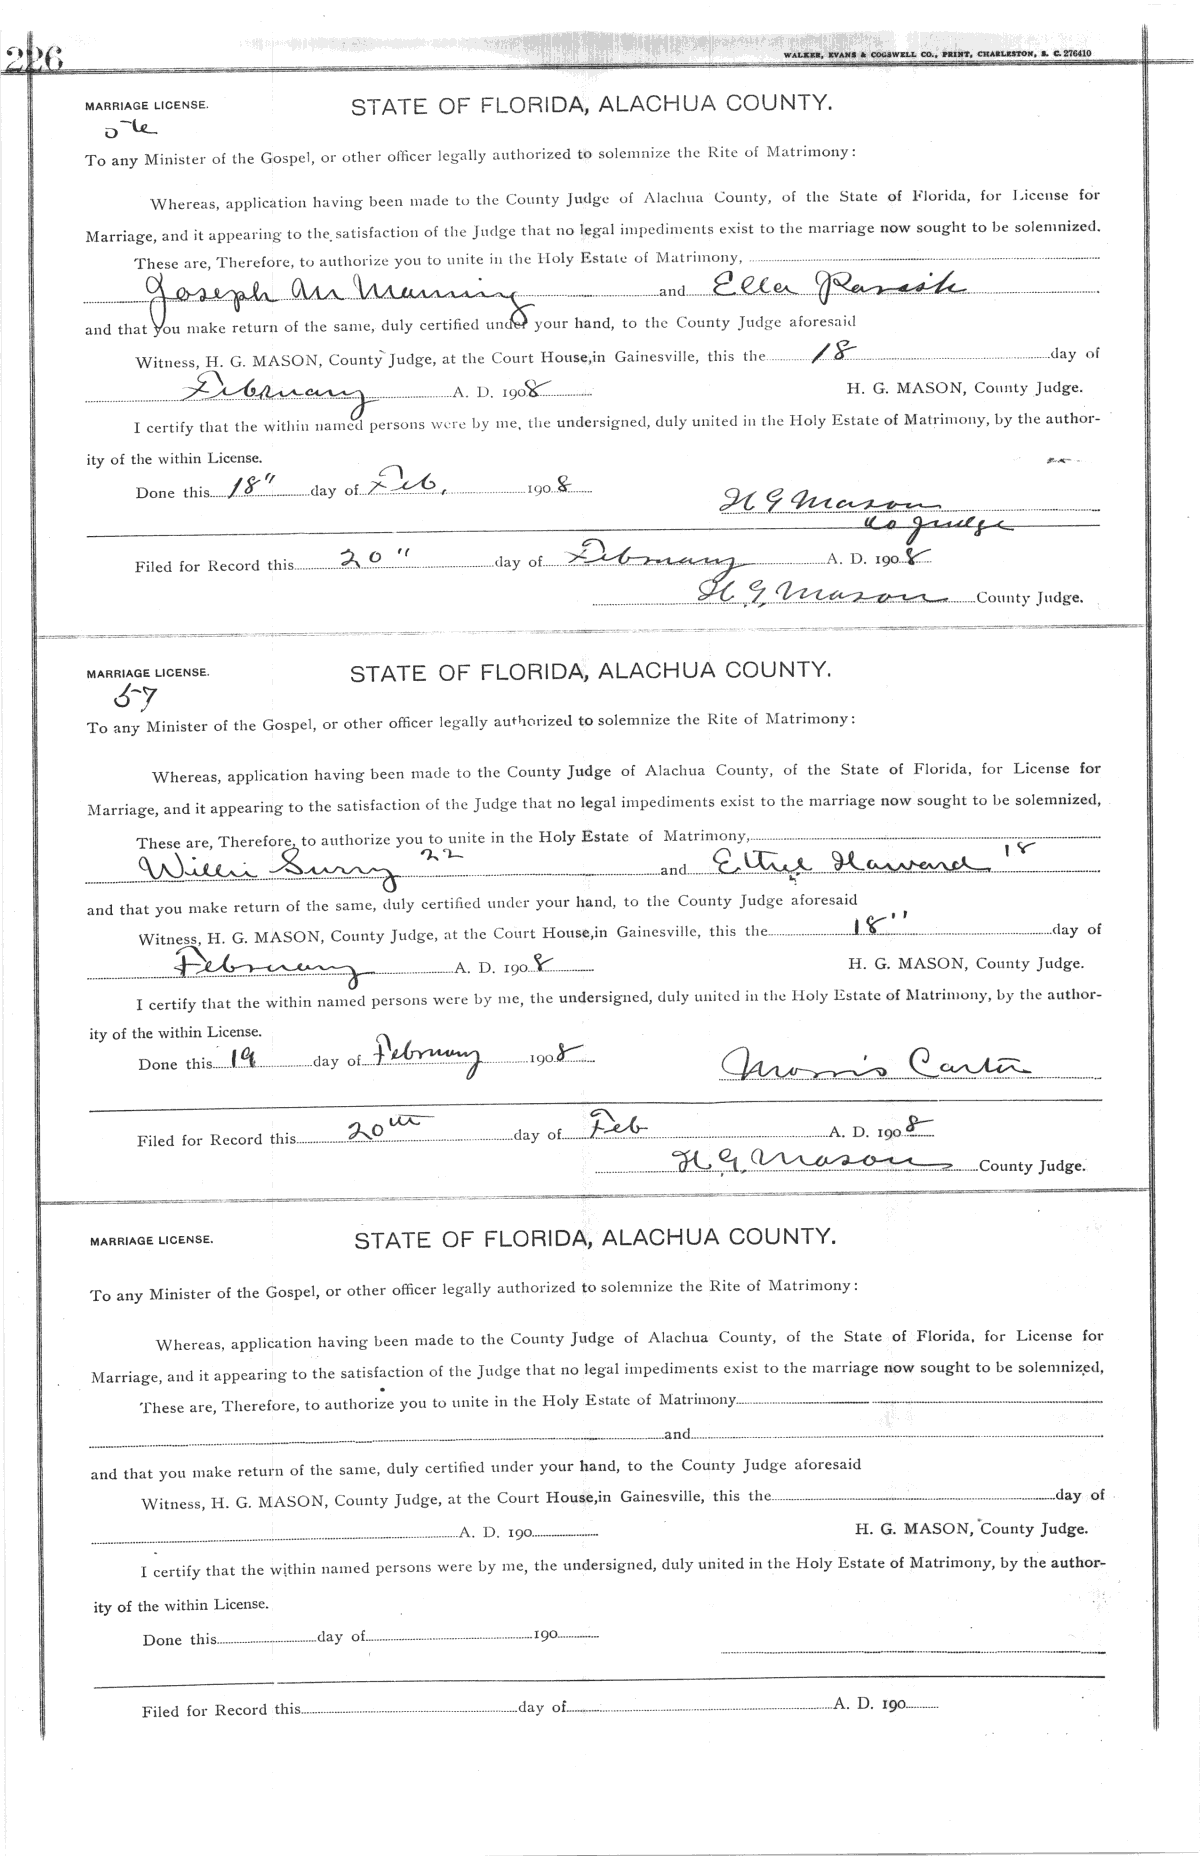 226
WALKER, EVANS & COGSWELL CO., PRINT, CHARLESTON, S. C. 276410
MARRIAGE LICENSE. STATE OF FLORIDA, ALACHUA COUNTY.
To any Minister of the Gospel, or other officer legally authorized to solemnize the Rite of Matrimony:
Whereas, application having been made to the County Judge of Alachua County, of the State of Florida, for License for
Marriage, and it appearing to the satisfaction of the Judge that no legal impediments exist to the marriage now sought to be solemnized.
These are, Therefore, to authorize you to unite in the Holy Estate of Matrimony,
Joseph M Manning and Ella Parish
and that you make return of the same, duly certified under your hand, to the County Judge aforesaid
Witness, H. G. MASON, County Judge, at the Court House, in Gainesville, this the 18 day of
February A. D. 1908 H. G. MASON, County Judge.
I certify that the within named persons were by me, the undersigned, duly united in the Holy Estate of Matrimony, by the author-
ity of the within License.
Done this 18" day of Feb, 1908 H G Mason
Co Judge
Filed for Record this 20" day of February A. D. 1908
H. G. Mason County Judge.
MARRIAGE LICENSE. STATE OF FLORIDA, ALACHUA COUNTY.
57
To any Minister of the Gospel, or other officer legally authorized to solemnize the Rite of Matrimony:
Whereas, application having been made to the County Judge of Alachua County, of the State of Florida, for License for
Marriage, and it appearing to the satisfaction of the Judge that no legal impediments exist to the marriage now sought to be solemnized,
These are, Therefore, to authorize you to unite in the Holy Estate of Matrimony,
Willie Surry 22 and Ethel Haward 18
and that you make return of the same, duly certified under your hand, to the County Judge aforesaid
Witness, H. G. MASON, County Judge, at the Court House, in Gainesville, this the 18" day of
February A. D. 1908 H. G. MASON, County Judge.
I certify that the within named persons were by me, the undersigned, duly united in the Holy Estate of Matrimony, by the author-
ity of the within License.
Done this 19 day of February 1908 Morris Carter
Filed for Record this 20th day of Feb A. D. 1908
H. G. Mason County Judge.
MARRIAGE LICENSE. STATE OF FLORIDA, ALACHUA COUNTY.
To any Minister of the Gospel, or other officer legally authorized to solemnize the Rite of Matrimony:
Whereas, application having been made to the County Judge of Alachua County, of the State of Florida, for License for
Marriage, and it appearing to the satisfaction of the Judge that no legal impediments exist to the marriage now sought to be solemnized,
These are, Therefore, to authorize you to unite in the Holy Estate of Matrimony
and
and that you make return of the same, duly certified under your hand, to the County Judge aforesaid
Witness, H. G. MASON, County Judge, at the Court House, in Gainesville, this the day of
A. D. 190 H. G. MASON, County Judge.
I certify that the within named persons were by me, the undersigned, duly united in the Holy Estate of Matrimony, by the author-
ity of the within License.
Done this day of 190
Filed for Record this day of A. D. 190